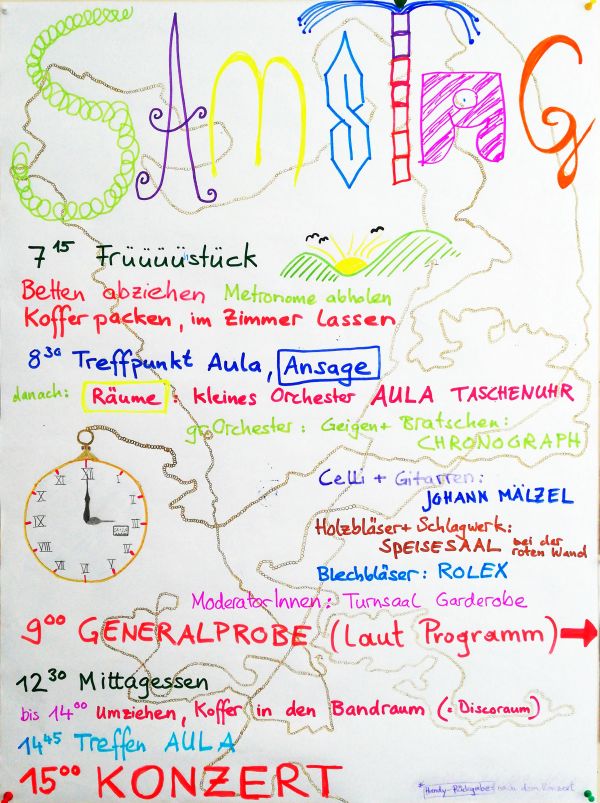 SAMSTAG
7 15 Früüüüüstück
Betten abziehen Metronome abholen
Koffer packen, im Zimmer lassen
8 30 Treffpunkt Aula, Ansage
danach: Räume: kleines Orchester AULA TASCHENUHR
gr. Orchester: Geigen + Bratschen:
CHRONOGRAPH
Celli + Gitarren:
JOHANN MÄLZEL
Holzbläser + Schlagwerk:
SPEISESAAL bei der
roten Wand
Blechbläser: ROLEX
ModeratorInnen: Turnsaal Garderobe
9 00 GENERALPROBE (Laut Programm)
12 30 Mittagessen
bis 14 00 umziehen, Koffer in den Bandraum (= Discoraum)
14 45 Treffen AULA
15 00 KONZERT
* Handy-Rückgabe nach dem Konzert
XII
I
II
IIII
V
VI
VII
VIII
IX
X
XI